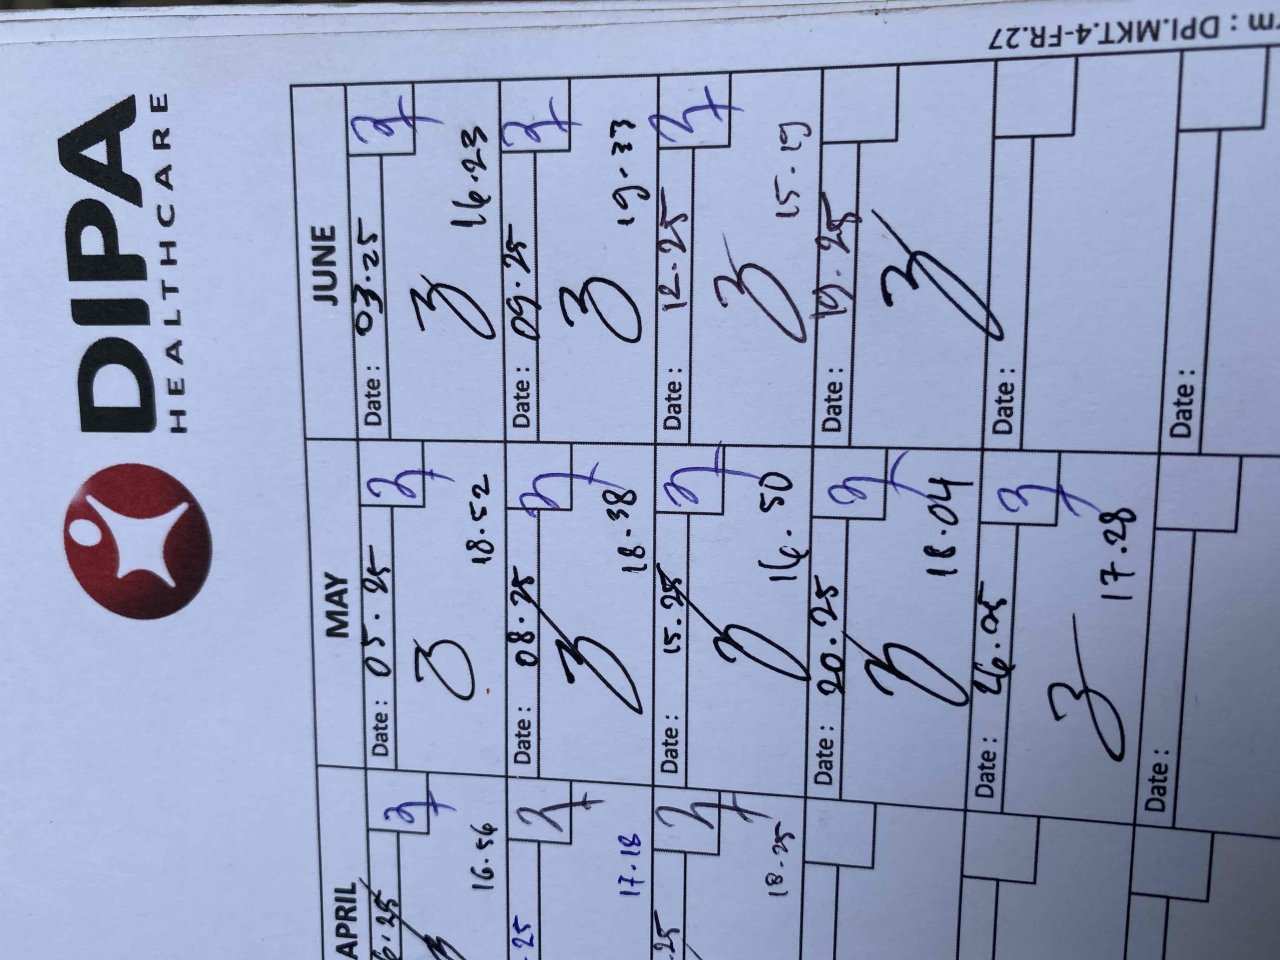 DIPA
HEALTHCARE
rm : DPI.MKT.4-FR.27
APRIL
16.56
.25
17.18
.25
18.25
MAY
Date : 05.25
18.52
Date : 08.25
18.38
Date : 15.25
16.50
Date : 20.25
18.04
Date : 26.05
17.28
Date :
JUNE
Date : 03.25
16.23
Date : 09.25
19.33
Date : 12.25
15.19
Date : 19.25
Date :
Date :